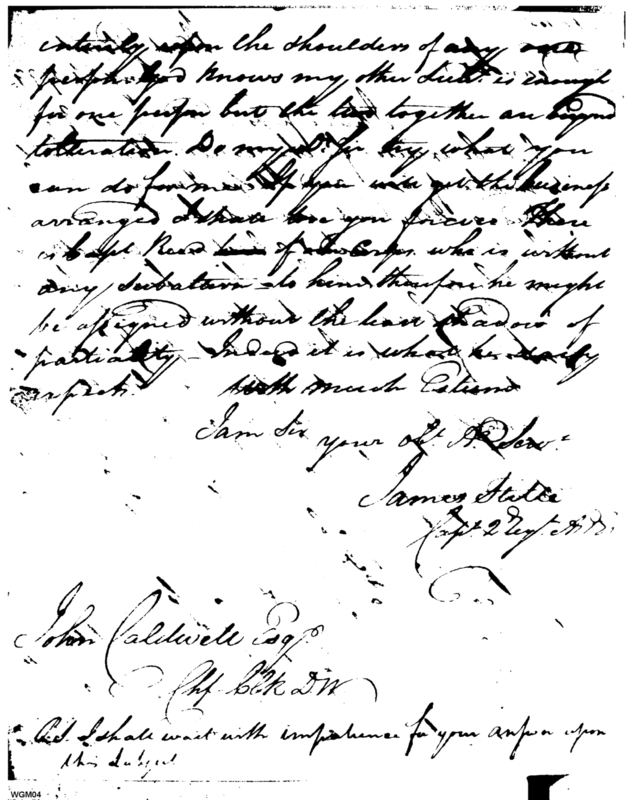 entirely upon the shoulders of any one
person. God knows my other Lieut. is enough
for one person but the two together are beyond
tolleration. Do my dr. Sir try what you
can do for me. If you will get the business
arranged I shall love you forever. There
is Capt Read of Corps who is without
any subaltern - to him therefore he might
be assigned without the least shadow of
partiality - Indeed it is what he daily
expects. With much Esteem
I am Sir your obt. He Servt
James Stille
Capt. 2 Regt. A.
John Caldwell Esqr.
Chf Clk D W
P.S. I shall wait with impatience for your answer upon
this Subject
WGM04